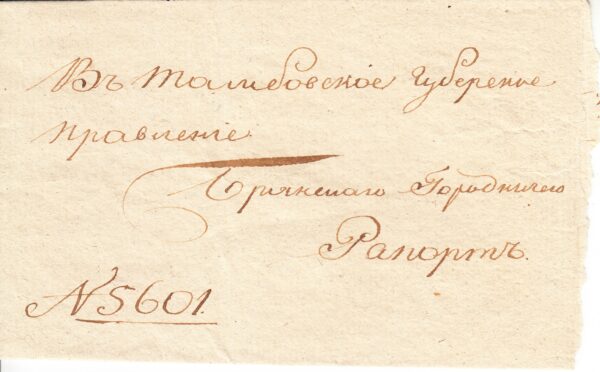 Въ Тамбовское Губерское
правление
Брянскаго Городничего
Рапортъ.
N 5601.